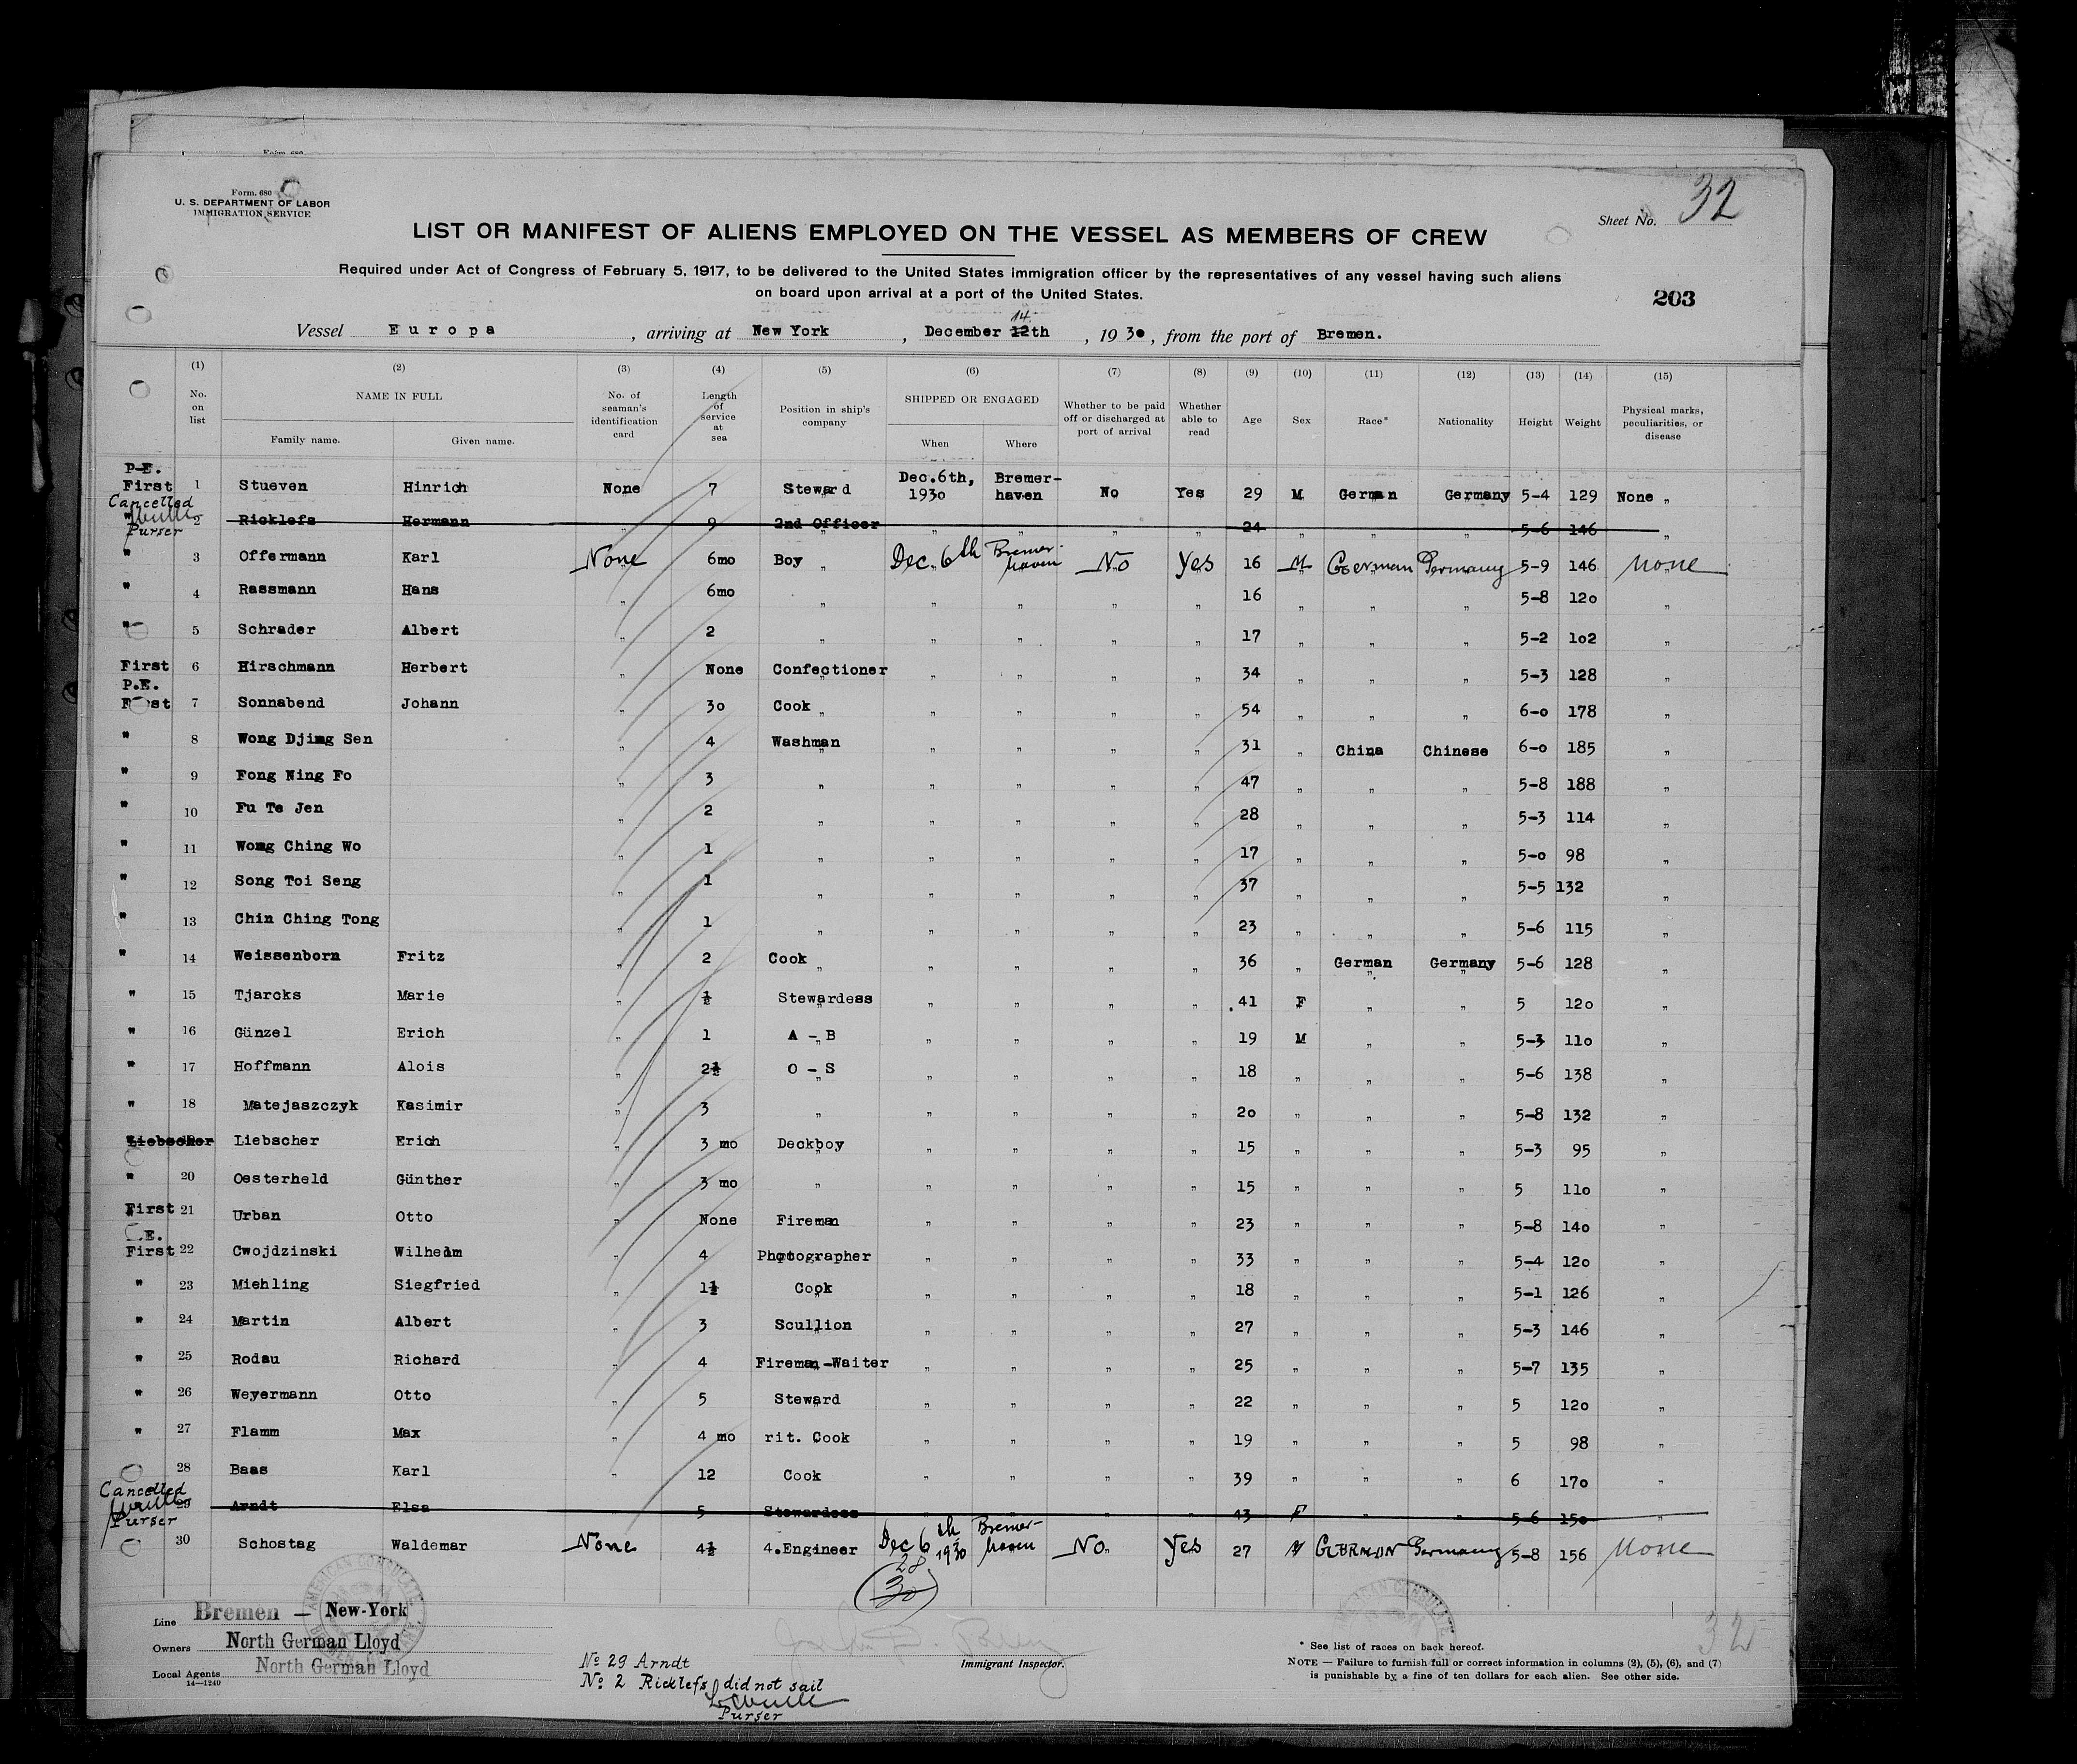 Form 680
Form. 680
U. S. DEPARTMENT OF LABOR
IMMIGRATION SERVICE
Sheet No. 32
LIST OR MANIFEST OF ALIENS EMPLOYED ON THE VESSEL AS MEMBERS OF CREW
Required under Act of Congress of February 5, 1917, to be delivered to the United States immigration officer by the representatives of any vessel having such aliens
on board upon arrival at a port of the United States.
203
14
Vessel Europa , arriving at New York , December 12th , 1930, from the port of Bremen.
(1) (2) (3) (4) (5) (6) (7) (8) (9) (10) (11) (12) (13) (14) (15)
No. on list NAME IN FULL Family name. Given name. No. of seaman's identification card Length of service at sea Position in ship's company SHIPPED OR ENGAGED When Where Whether to be paid off or discharged at port of arrival Whether able to read Age Sex Race* Nationality Height Weight Physical marks, peculiarities, or disease
P-E.
First 1 Stueven Hinrich None 7 Steward Dec.6th, 1930 Bremer-haven No Yes 29 M German Germany 5-4 129 None „
Cancelled
" 2 Ricklefs Hermann „ 9 2nd Officer „ „ „ „ 24 „ „ „ 5-6 146 „
Purser
" 3 Offermann Karl None 6mo Boy „ Dec. 6th Bremer-haven No Yes 16 M German Germany 5-9 146 None
" 4 Rassmann Hans „ 6mo „ „ „ „ „ 16 „ „ „ 5-8 120 „
" 5 Schrader Albert „ 2 „ „ „ „ „ 17 „ „ „ 5-2 102 „
First 6 Hirschmann Herbert „ None Confectioner „ „ „ „ 34 „ „ „ 5-3 128 „
P.E.
First 7 Sonnabend Johann „ 30 Cook „ „ „ „ „ 54 „ „ „ 6-0 178 „
" 8 Wong Djing Sen „ 4 Washman „ „ „ „ 31 „ China Chinese 6-0 185 „
" 9 Fong Ning Fo „ 3 „ „ „ „ „ 47 „ „ „ 5-8 188 „
" 10 Fu Te Jen „ 2 „ „ „ „ „ 28 „ „ „ 5-3 114 „
" 11 Wong Ching Wo „ 1 „ „ „ „ „ 17 „ „ „ 5-0 98 „
" 12 Song Toi Seng „ 1 „ „ „ „ „ 37 „ „ „ 5-5 132 „
" 13 Chin Ching Tong „ 1 „ „ „ „ „ 23 „ „ „ 5-6 115 „
" 14 Weissenborn Fritz „ 2 Cook „ „ „ „ „ 36 „ German Germany 5-6 128 „
" 15 Tjarcks Marie „ ½ Stewardess „ „ „ „ 41 F „ „ 5 120 „
" 16 Günzel Erich „ 1 A - B „ „ „ „ 19 M „ „ 5-3 110 „
" 17 Hoffmann Alois „ 2½ O - S „ „ „ „ 18 „ „ „ 5-6 138 „
" 18 Matejaszczyk Kasimir „ 3 „ „ „ „ „ 20 „ „ „ 5-8 132 „
Liebscher Liebscher Erich „ 3 mo Deckboy „ „ „ „ 15 „ „ „ 5-3 95 „
" 20 Oesterheld Günther „ 3 mo „ „ „ „ „ 15 „ „ „ 5 110 „
First 21 Urban Otto „ None Fireman „ „ „ „ 23 „ „ „ 5-8 140 „
.E.
First 22 Cwojdzinski Wilhelm „ 4 Photographer „ „ „ „ 33 „ „ „ 5-4 120 „
" 23 Miehling Siegfried „ 1½ Cook „ „ „ „ 18 „ „ „ 5-1 126 „
" 24 Martin Albert „ 3 Scullion „ „ „ „ 27 „ „ „ 5-3 146 „
" 25 Rodau Richard „ 4 Fireman-Waiter „ „ „ „ 25 „ „ „ 5-7 135 „
" 26 Weyermann Otto „ 5 Steward „ „ „ „ 22 „ „ „ 5 120 „
" 27 Flamm Max „ 4 mo rit. Cook „ „ „ „ 19 „ „ „ 5 98 „
28 Baas Karl „ 12 Cook „ „ „ „ 39 „ „ „ 6 170 „
Cancelled
29 Arndt Elsa „ 5 Stewardess „ „ „ „ 43 F „ „ 5-6 150 „
Purser
30 Schostag Waldemar None 4½ 4.Engineer Dec 6th 1930 Bremer-haven No Yes 27 M GERMAN Germany 5-8 156 None
28
(30)
AMERICAN CONSULATE
AMERICAN CONSULATE
Line Bremen — New-York
Owners North German Lloyd
Local Agents North German Lloyd
14—1240
No 29 Arndt
No 2 Ricklefs did not sail
Purser
Immigrant Inspector.
32
* See list of races on back hereof.
NOTE — Failure to furnish full or correct information in columns (2), (5), (6), and (7)
is punishable by a fine of ten dollars for each alien. See other side.